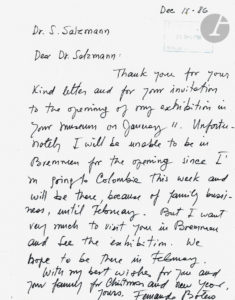 Dec 18 - 86
Dr. S. Salzmann
Dear Dr. Salzmann:
Thank you for your
kind letter and for your invitation
to the opening of my exhibition in
your museum on January 11. Unfortu-
nately I will be unable to be in
Bremmen for the opening since I
m going to Colombia this week and
will be there, because of family busi-
ness, until February. But I want
very much to visit you in Bremmen
and see the exhibition. We
hope to be there in February.
With my best wishes for you and
your family for Christmas and new year,
yours, Fernando Botero